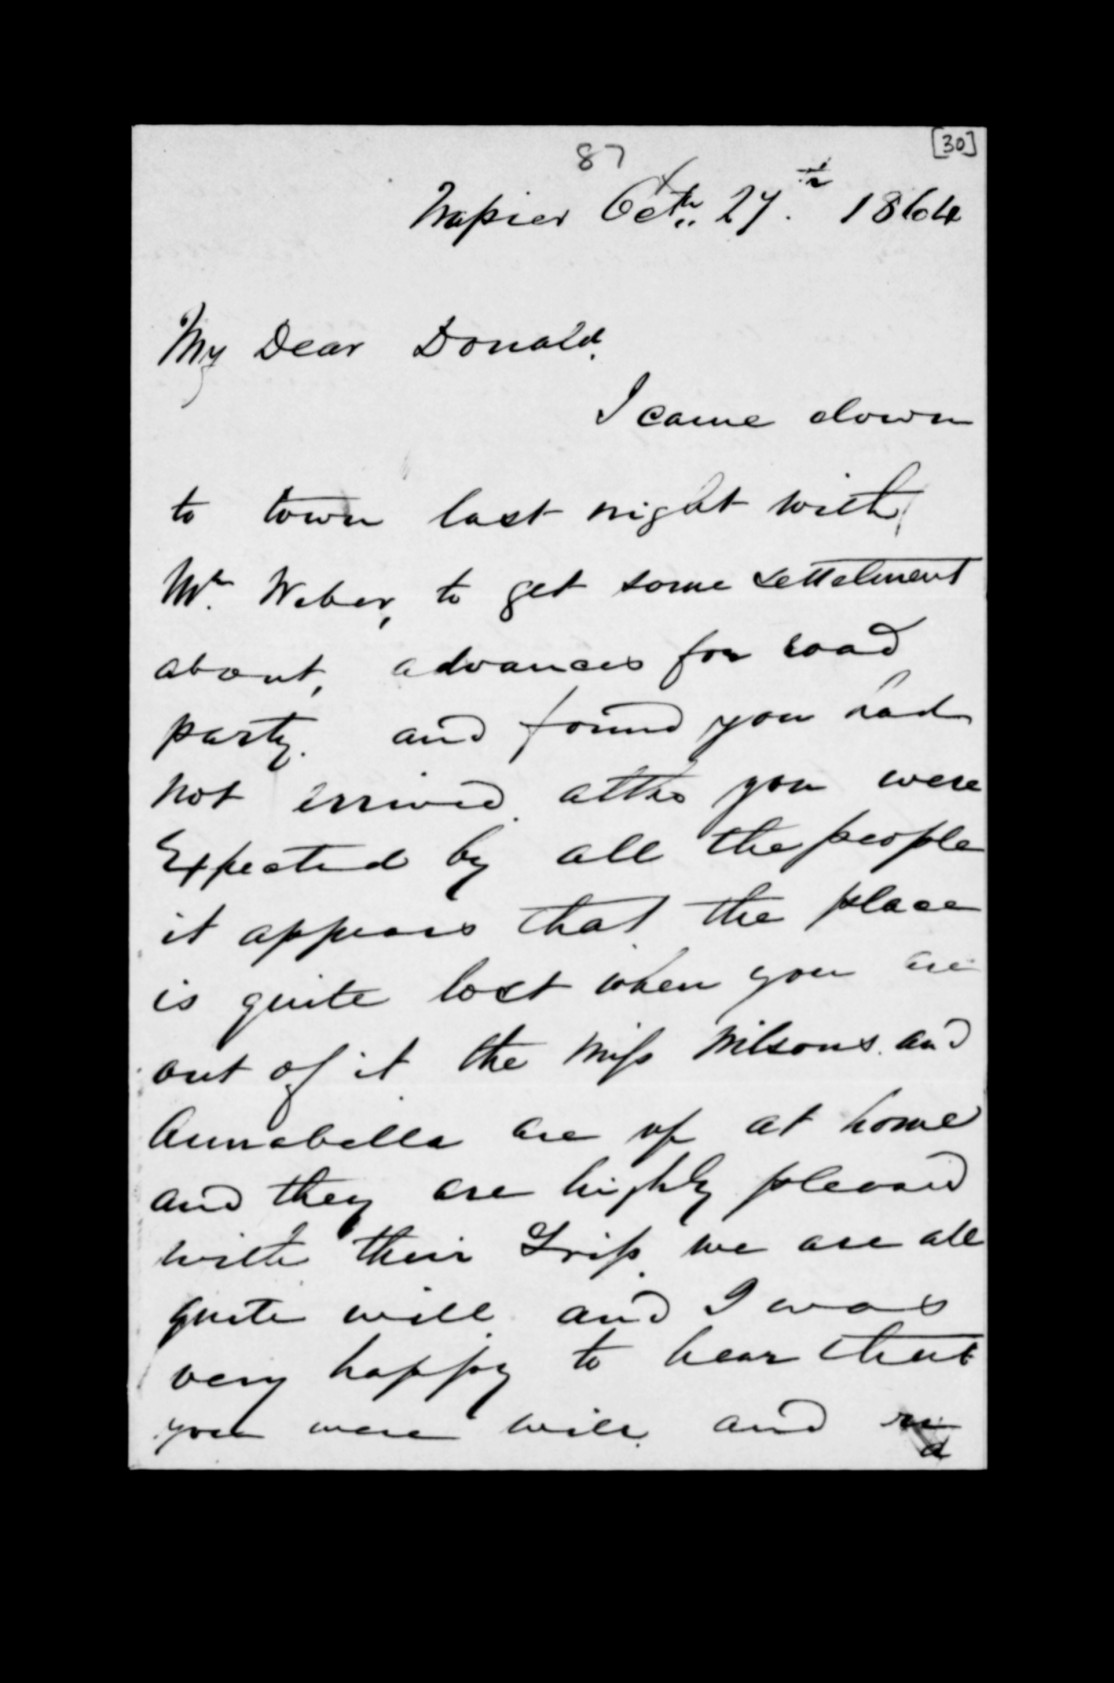 [30]
87
Napier Octr. 27th 1864
My Dear Donald.
I came down
to town last night with
Mr. Weber, to get some settelment
about, advances for road
party. and found you had
not arrived. altho you were
Expected by all the people
it appears that the place
is quite lost when you are
out of it the Miss Wilsons. and
Annabella are up at home
and they are highly pleased
with their Trip. we are all
quite well. and I was
very happy to hear that
you were well. and